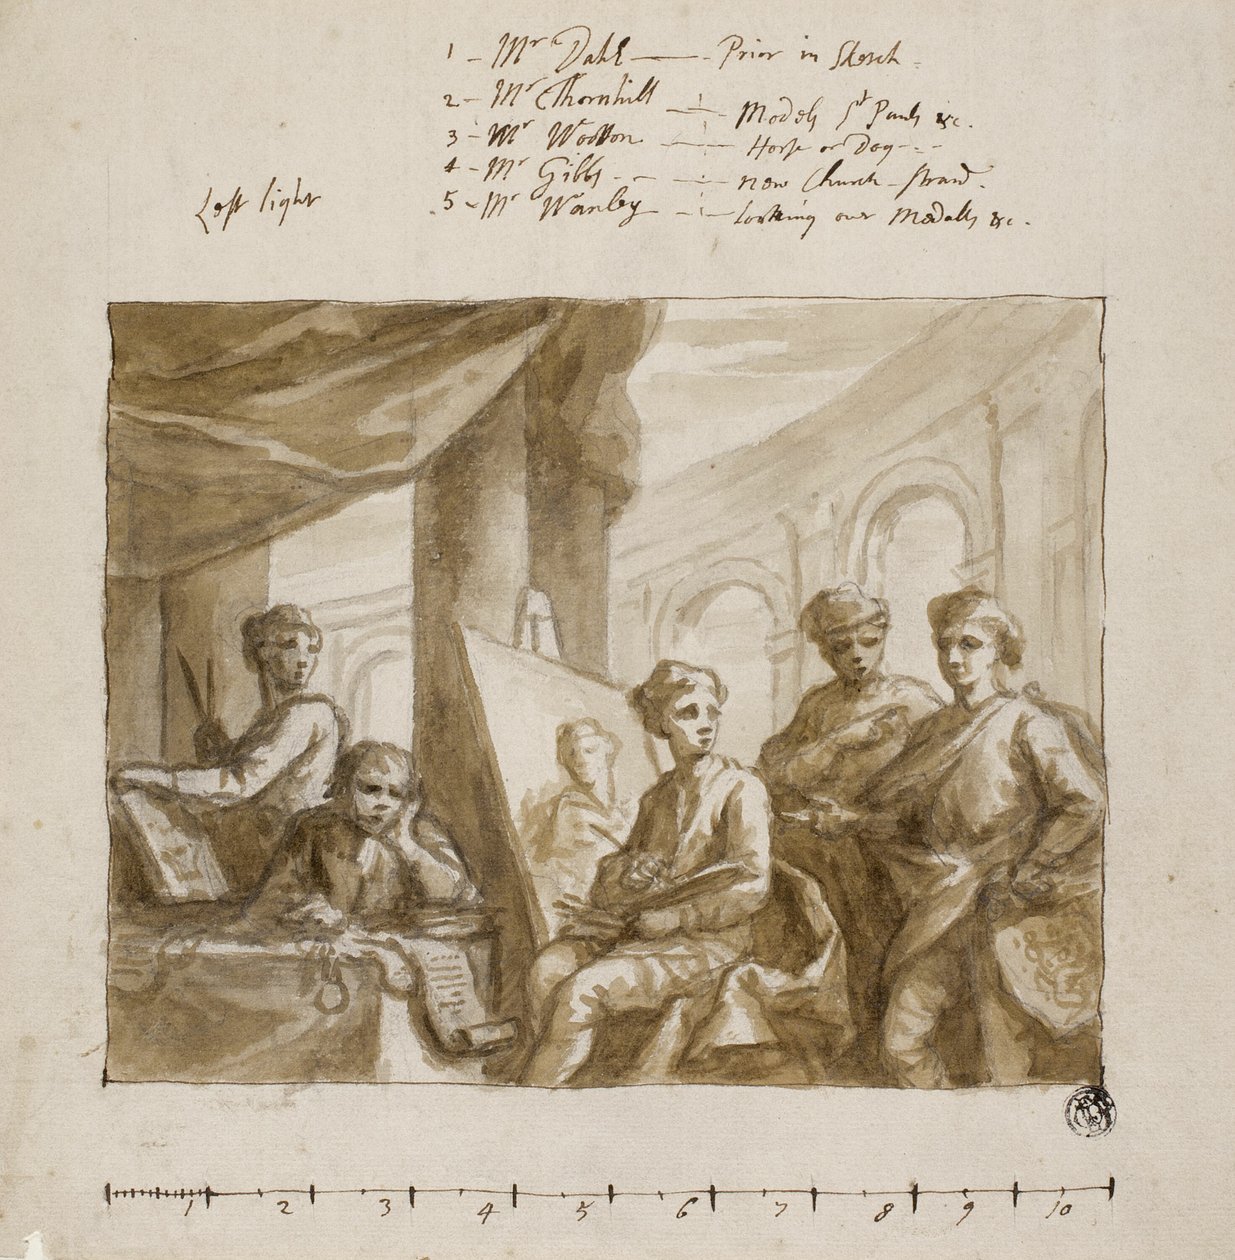 1 - Mr Dahl — Prior in Sketch -
2 - Mr Thornhill — Models St Pauls &c.
3 - Mr Wootton — Horse or Dog - - -
4 - Mr Gibbs - — New Church - Strand.
5 - Mr Wanley — Looking over Medalls &c.
Left light
1 2 3 4 5 6 7 8 9 10